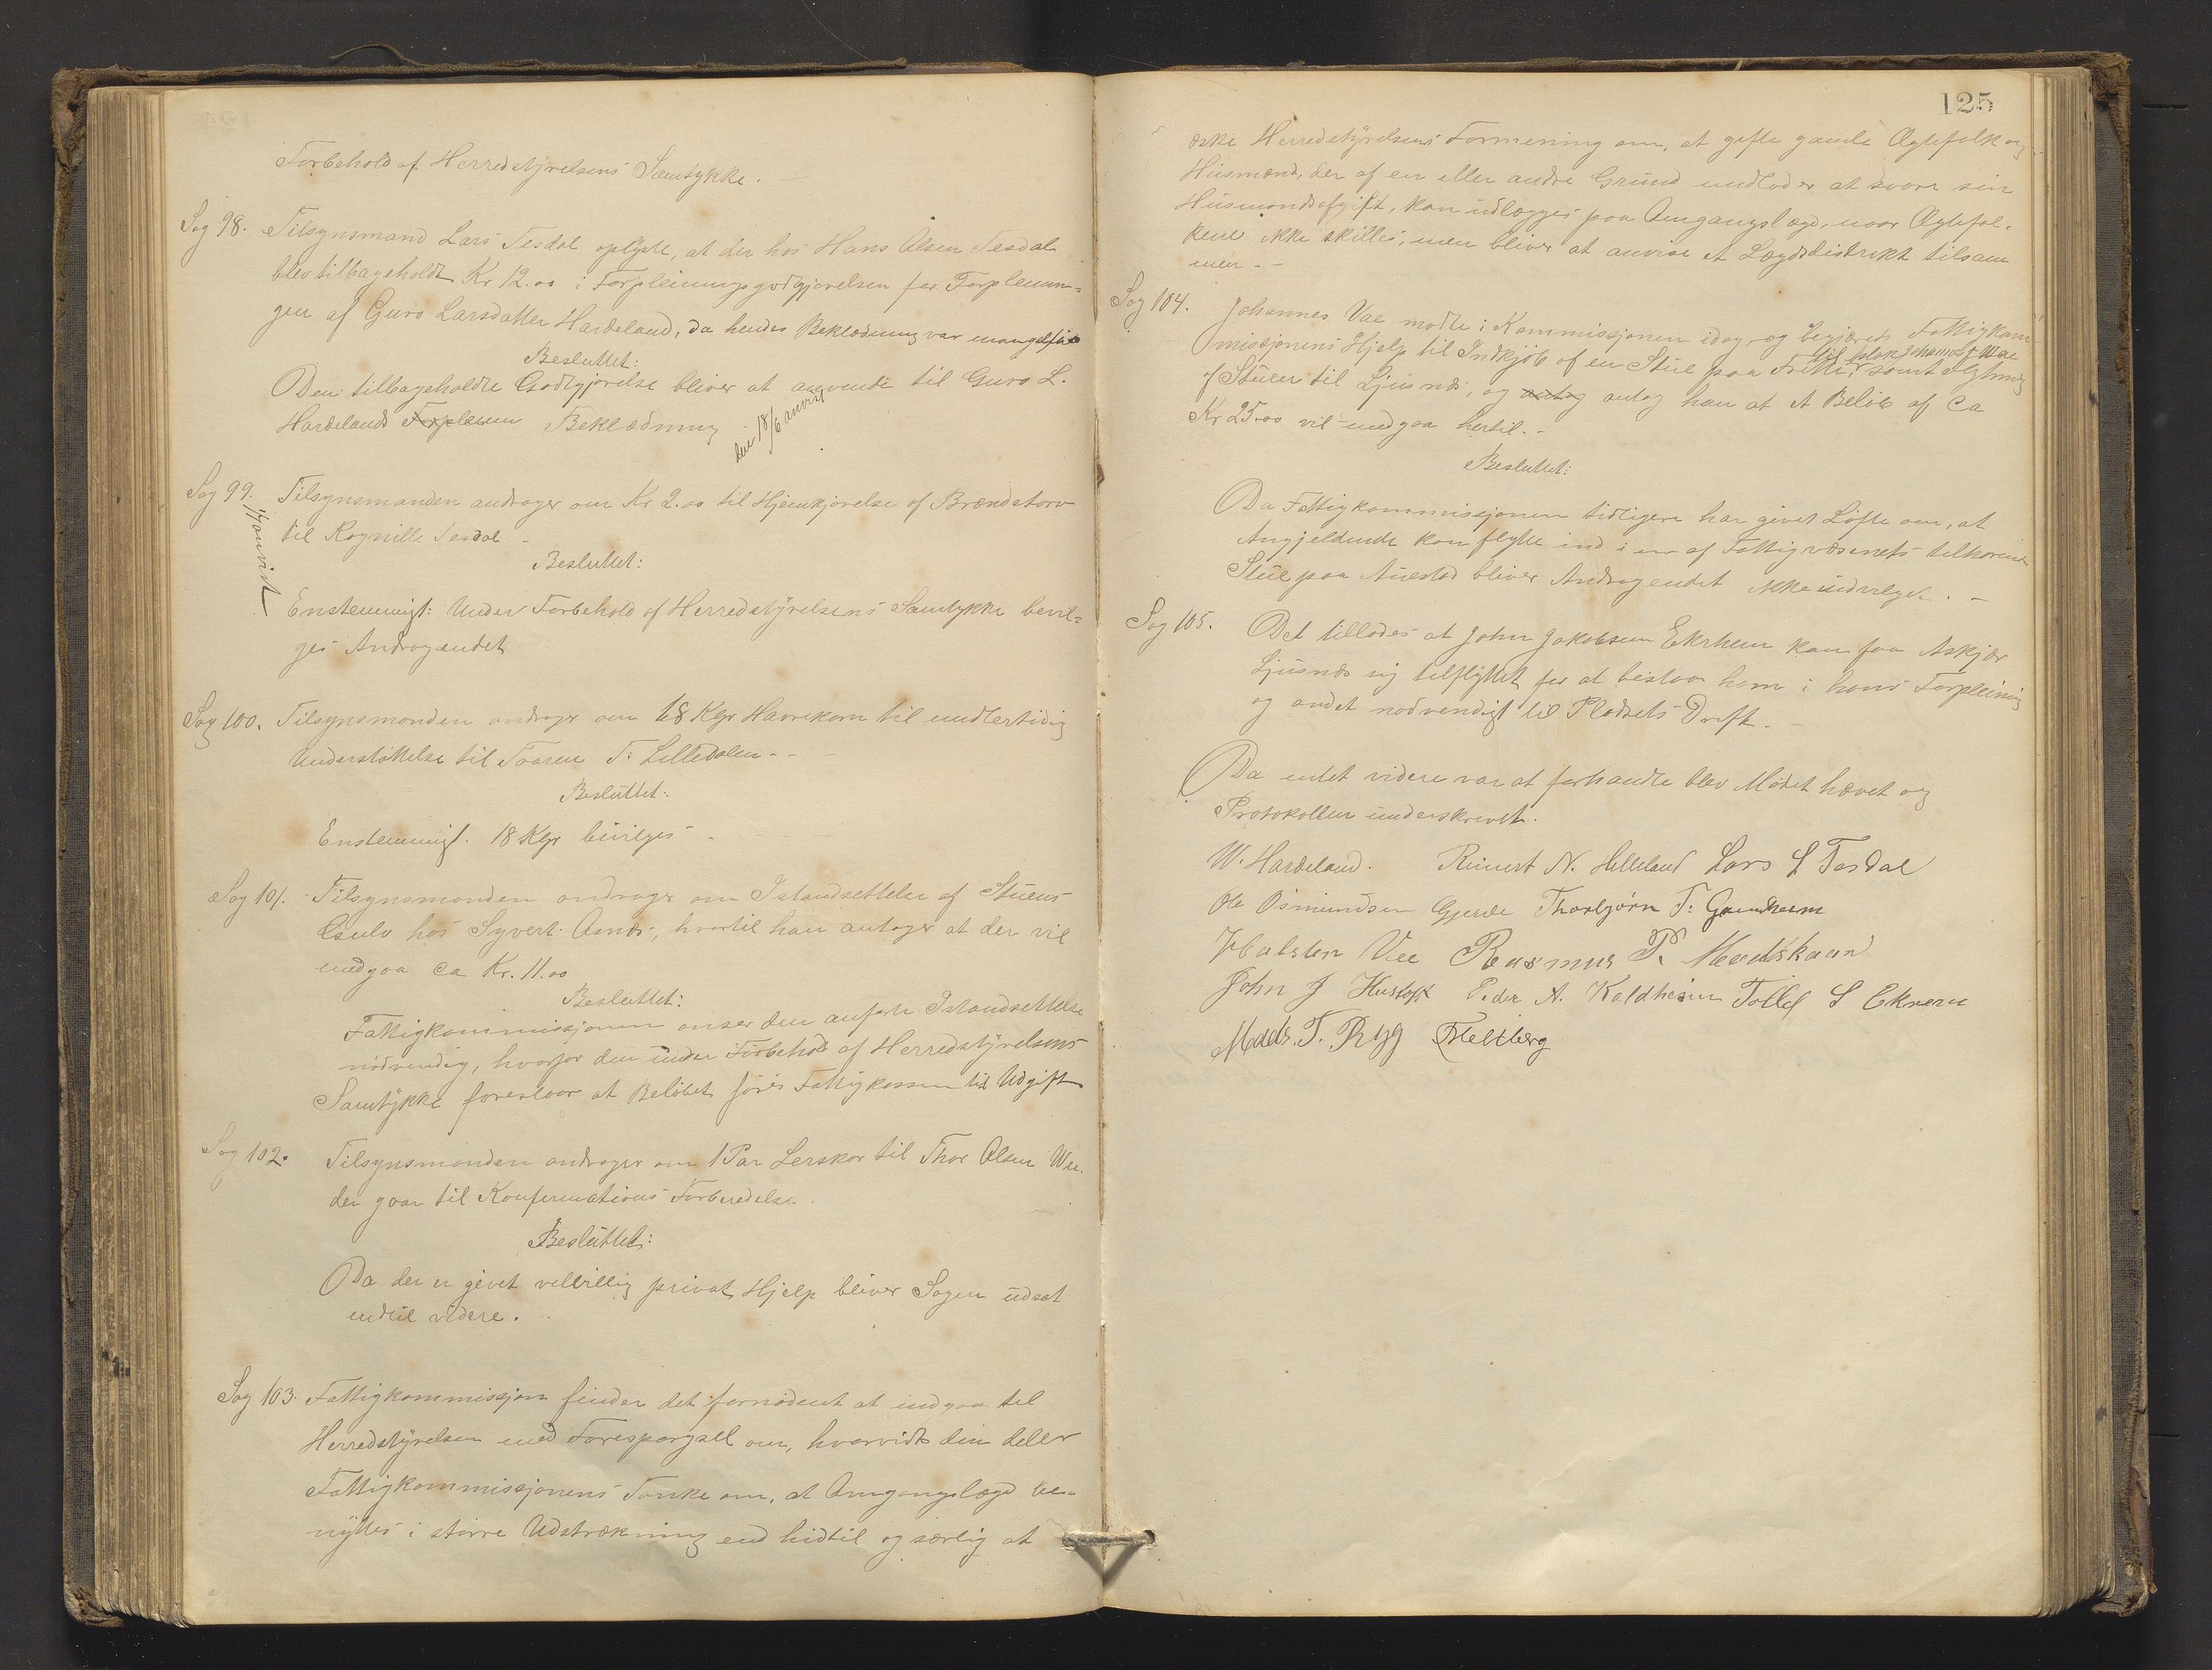 Forbehold af Herredstyrelsens Samtykke. -
Sag 98. Tilsynsmand Lars Tesdal oplyste, at der hos Hans Olsen Tesdal
blev tilbageholdt Kr 12.00 i Forpleiningsgodtgjørelsen for Forpleinin=
gen af Guro Larsdatter Hardeland, da hendes Beklædning var mangelfuld
Besluttet:
Den tilbageholdte Godtgjørelse bliver at anvende til Guro L.
Hardelands Forpleinin Beklædning
den 18/6 anvist
Sag 99. Tilsynsmanden andrager om Kr 2.00 til Hjemkjørelse af Brændetorv
til Ragnille Tesdal -
anvist
Besluttet:
Enstemmigt: Under Forbehold af Herredstyrelsens Samtykke bevil=
ges Andragendet
Sag 100. Tilsynsmanden andrager om 18 Kgr Havrekorn til midlertidig
Understøttelse til Taaren T. Lilledalen - -
Besluttet:
Enstemmigt. 18 Kgr bevilges - .
Sag 101. Tilsynsmanden andrager om Istandsettelse af Stuens
Gulv hos Syvert Aanes, hvortil han antager at der vil
medgaa ca Kr. 11.00
Besluttet:
Fattigkommissjonen anser den anførte Istandsettelse
nødvendig, hvorfor den under Forbehold af Herredstyrelsens
Samtykke foreslaar at Beløbet føres Fattigkassen til Udgift
Sag 102. Tilsynsmanden andrager om 1 Par Lerskor til Thor Olsen Wee.
der gaar til Konfirmations Forberedelse.
Besluttet:
Da der er givet velvillig privat Hjelp bliver Sagen udsat
indtil videre.
Sag 103. Fattigkommissjon finder det fornødent at indgaa til
Herredstyrelsen med Forespørgsel om, hvorvidt din deler
Fattigkommissjonens Tanke om, at Omgangslægd be=
nyttes i større Udstrækning end hidtil og særlig at
125
æske Herredstyrelsens Formening om, at gifte gamle Ægtefolk og
Husmænd, der af en eller anden Grund undlader at svare sin
Husmandsafgift, kan udlægges paa Omgangslægd, naar Ægtefol.
kene ikke skilles, men bliver at anvise et Lægdsdistrikt tilsam
men - -
Sag 104. Johannes Vae mødte i Kommissjonen idag og begjærede Fattigkom
missjonens Hjelp til Indkjøb af en Stue paa samt Flytning
til Johannes Wae
af Stuen til Ljusnæs, og antog antog han at et Beløb af ca
Kr 25.00 vil medgaa hertil. -
Besluttet:
Da Fattigkommissjonen tidligere har givet Løfte om, at
Angjeldende kan flytte ind i en af Fattigvæsenets tilhørende
Stue paa Auestad bliver Andragendet ikke indvilget. -
Sag 105. Det tillades at John Jakobsen Ekrheim kan faa Askjær
Ljusnæs sig tilflyttet for at bistaa ham i hans Forpleining
og andet nødvendigt til Pladsets Drift. -
Da intet videre var at forhandle blev Mødet hævet og
Protokollen underskrevet.
W. Hardeland. Reinert N. Helleland Lars L Tesdal
Ole Osmundsen Gjerde Thorbjørn T. Grindheim
Halsten Vee Rasmus P. Mændskaar
John J Hustoft Peder A. Kaldheim Tollef S Eknern
Mads. T. Rygg Meltberg